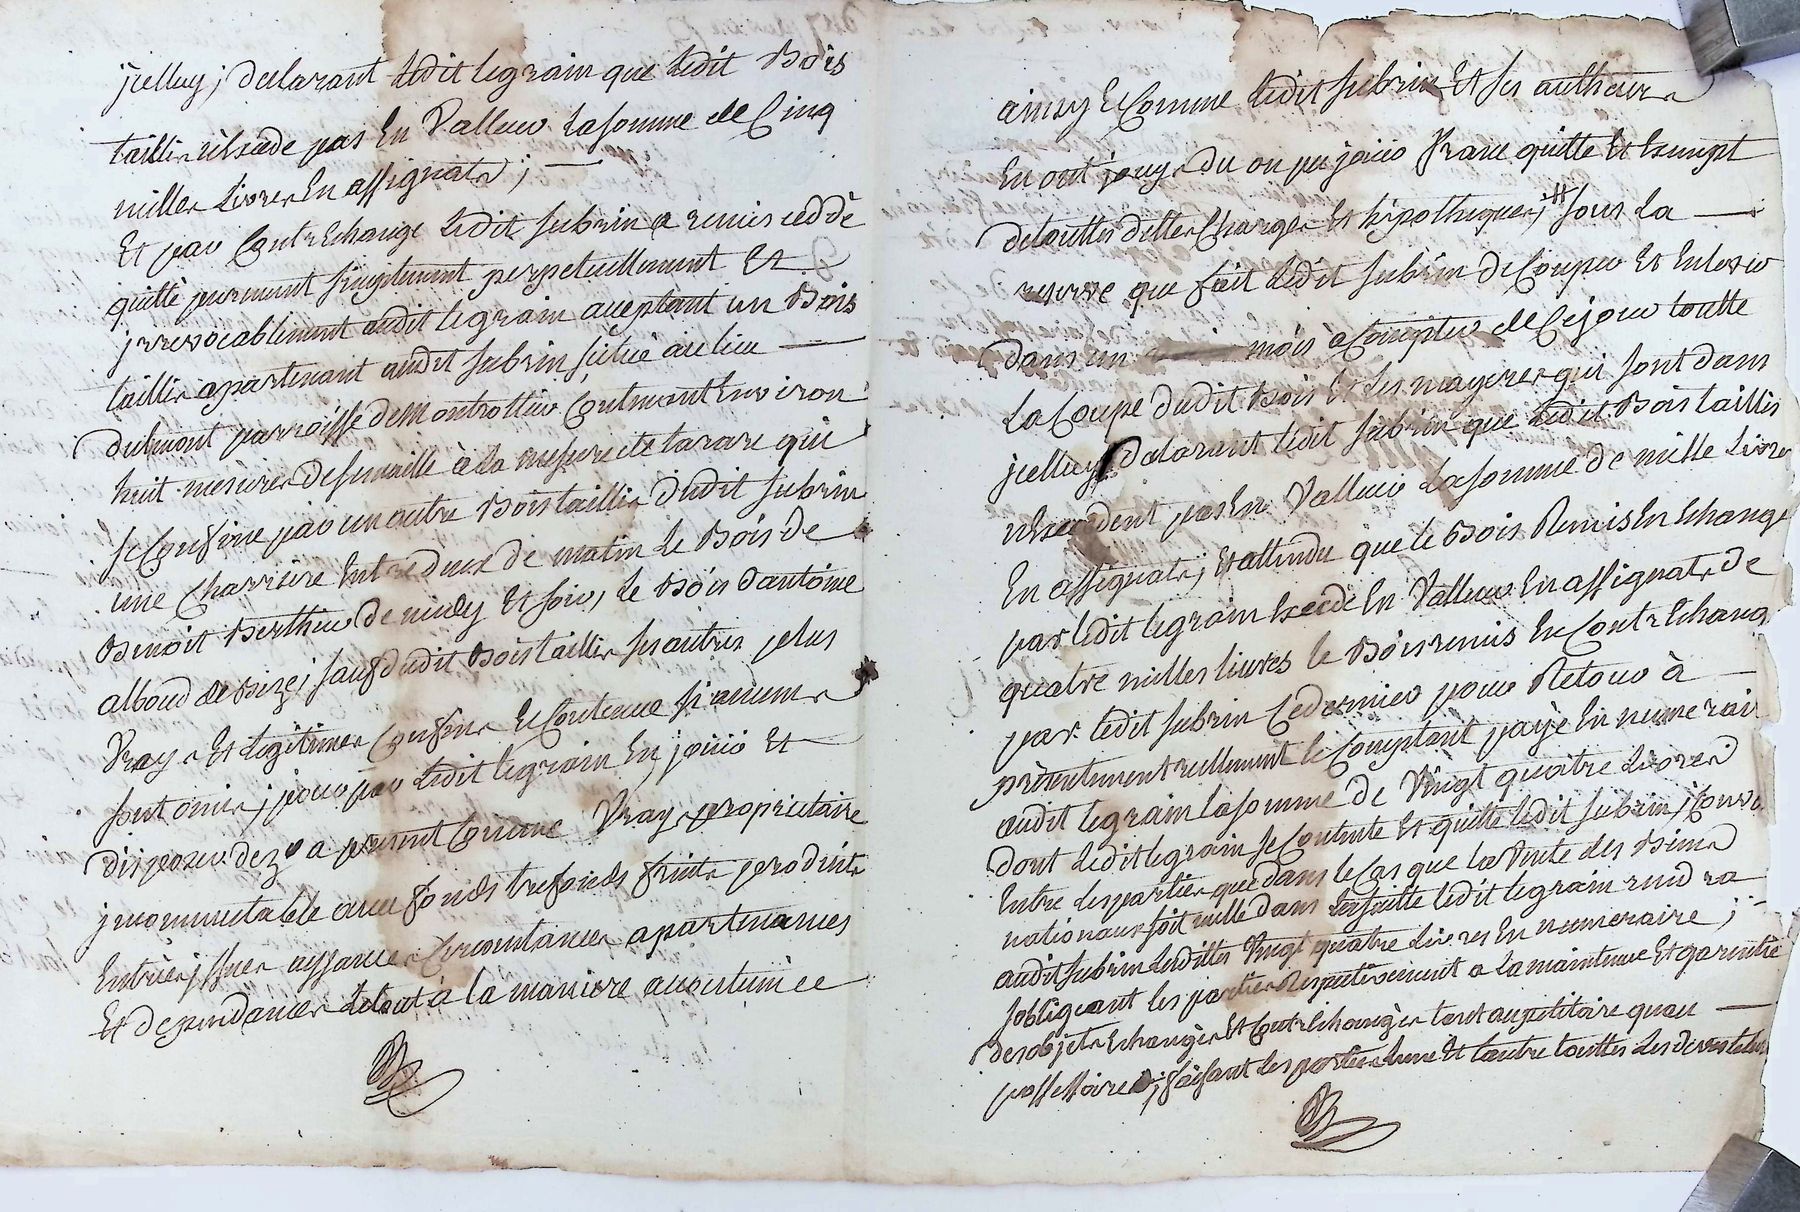 jcelluy ; declarant ledit legrain que ledit Bois
taillis n'excede pas En Valleur la somme de Cinq
milles Livres En assignats ; —
Et par Contrechange ledit subrin a remis ceddé
quitté purement simplement perpetuellement Et
jrrevocablement audit legrain aceptant un Bois
taillis apartenant audit subrin situé au lieu —
dulmont parroisse de Montrottier Contenant Environ
huit mesures de semaille à la mesure de tarare qui
se Confine par un autre Bois taillis dudit subrin
une Charriere Entre deux de matin le Bois de
Benoit Berthier de midy Et soir, le Bois dantoine
alboud de Bize ; sauf dudit Bois taillis ses autres plus
Vrays Et Legitimes Confins Et Contenue si aucuns
sont omis ; pour par ledit legrain En jouir Et
disposer dez a present Comme Vray proprietaire
jncommutable avec fonds trefonds fruits produits
Entrées jssues aysances Circonstances apartenances
Et dependances le tout à la maniere accoutumée
ainsy Et Comme ledit subrin Et ses autheurs
En ont jouys du ou pu jouir franc quitte Et Exempt
de touttes dettes Charges Et hipotheques ; # sous la —
reserve que fait ledit subrin de Couper Et Enlever
dans un mois à Compter de Ce jour toutte
la Coupe dudit Bois Et les mayeres qui sont dans
jcelluy Declarant ledit subrin que ledit Bois taillis
n'Excedent pas En Valleur la somme de mille Livres
En assignats ; Et attendu que le Bois Remis En Echange
par ledit legrain Excede En Valleur En assignats de
quatre milles livres le Bois remis En Contrechange
par ledit subrin Ce dernier pour Retour à —
présentement reellement Et Comptant payé En numeraire
audit legrain la somme de Vingt quatre Livres
dont ledit legrain se Contente Et quitte ledit subrin ; Convenu
Entre les parties que dans le Cas que la Vente des Biens
nationaux soit nulle dans la suitte ledit legrain rendra
audit subrin lesdittes Vingt quatre Livres En numeraire ; —
sobligeant les parties Respectivement a la maintenue Et garentie
des objets Echangés Et Contrechangés tant au petitoire quau —
possessoire ; faisant les parties Lune Et Lautre touttes les devestitures